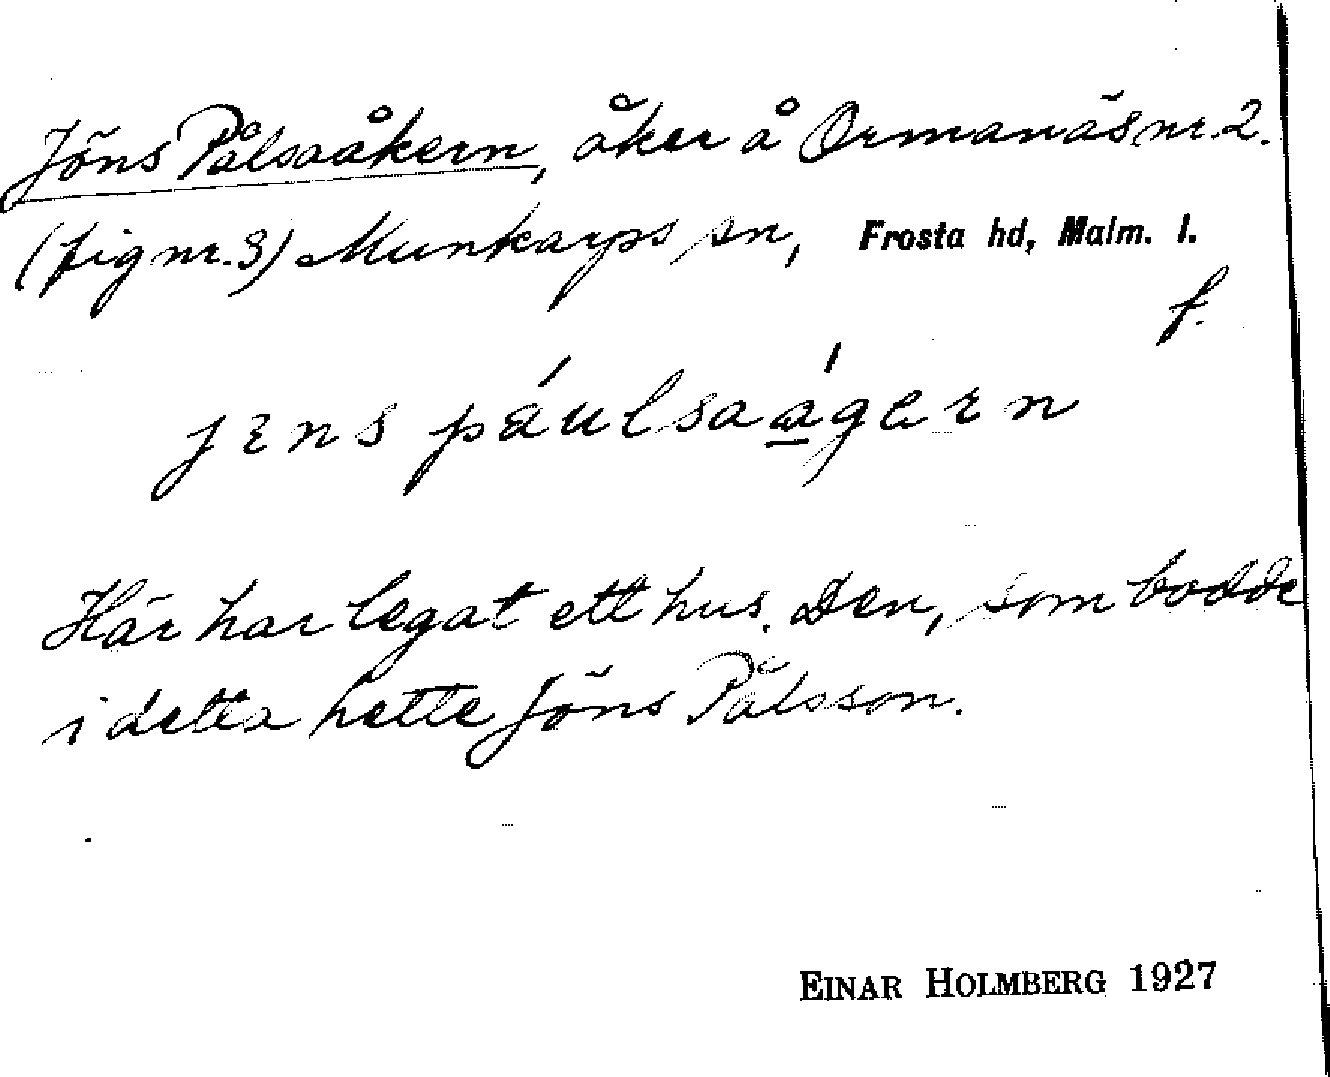 Jöns Pålsaåkern, åker å Ormanäs nr. 2.
(fig nr. 3) Munkarps sn, Frosta hd, Malm. l.
f.
jens páulsaágern
Här har legat ett hus. Den, som bodde
i detta hette Jöns Pålsson.
EINAR HOLMBERG 1927